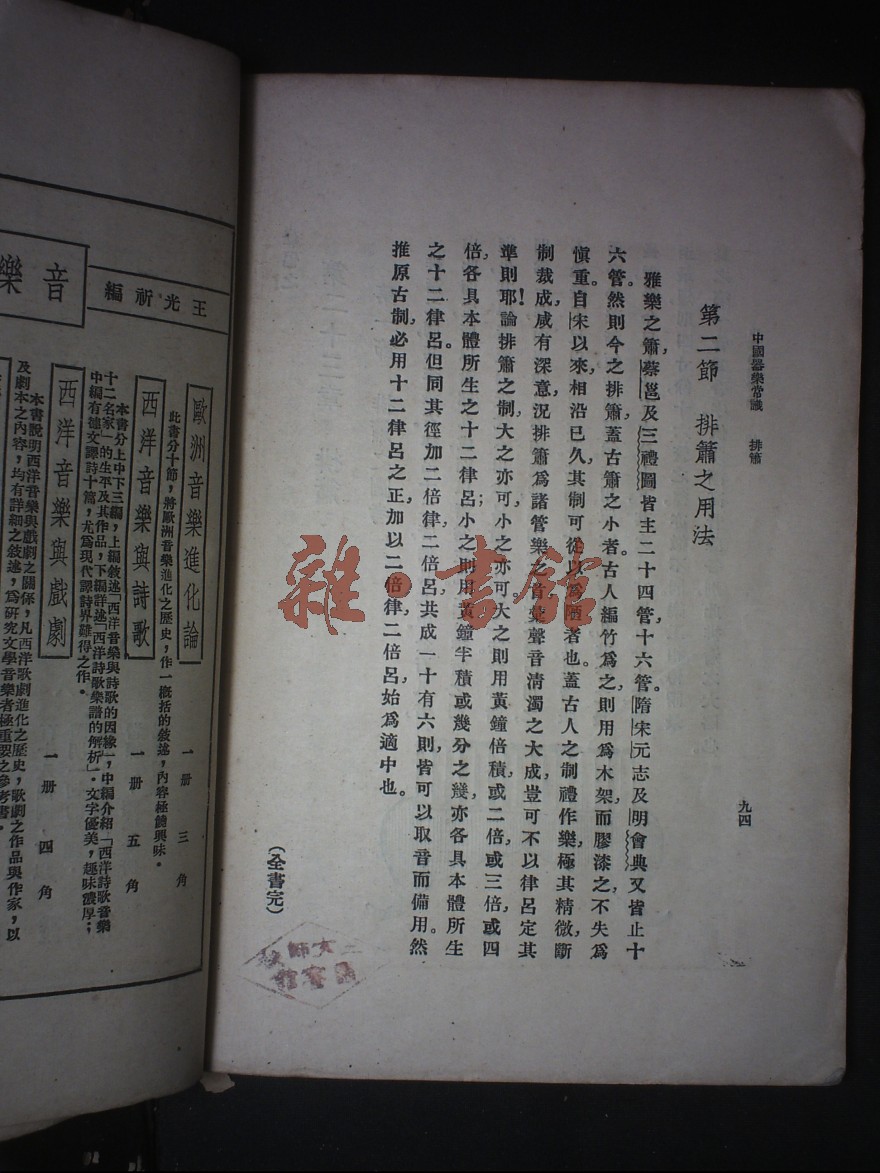 中國器樂常識　排簫
九四
第二節　排簫之用法
雅樂之簫，蔡邕及三禮圖皆主二十四管，十六管。隋宋元志及明會典又皆止十
六管。然則今之排簫，蓋古簫之小者。古人編竹爲之，則用爲木架而膠漆之，不失爲
愼重。自宋以來，相沿已久，其制可從，以爲陋者也。蓋古人之制禮作樂，極其精微，斷
制裁成，咸有深意，況排簫爲諸管樂之首，彙聲音淸濁之大成，豈可不以律呂定其
準則耶！論排簫之制，大之亦可，小之亦可。大之則用黃鐘倍積，或二倍或三倍或四
倍，各具本體所生之十二律呂；小之則用黃鐘半積或幾分之幾，亦各具本體所生
之十二律呂。但同其徑加二倍律二倍呂，共成一十有六，則皆可以取音而備用。然
推原古制，必用十二律呂之正，加以二倍律二倍呂，始爲適中也。
（全書完）
雜·書館
音樂
王光祈編
歐洲音樂進化論
一册　三角
此書分十節，將歐洲音樂進化之歷史，作一槪括的敍述，內容極饒興味。
西洋音樂與詩歌
一册　五角
本書分上中下三編，上編敍述「西洋音樂與詩歌的因緣」，中編介紹「西洋詩歌音樂
十二名家」的生平及其作品，下編詳述「西洋詩歌樂譜的解析」。文字優美，趣味濃厚；
中編有德文譯詩十篇，尤爲現代譯詩界難得之作。
西洋音樂與戲劇
一册　四角
本書說明西洋音樂與戲劇之關係，凡西洋歌劇進化之歷史，歌劇之作品與作家，以
及劇本之內容，均有詳細之敍述，爲研究文學音樂者極重要之參考書。